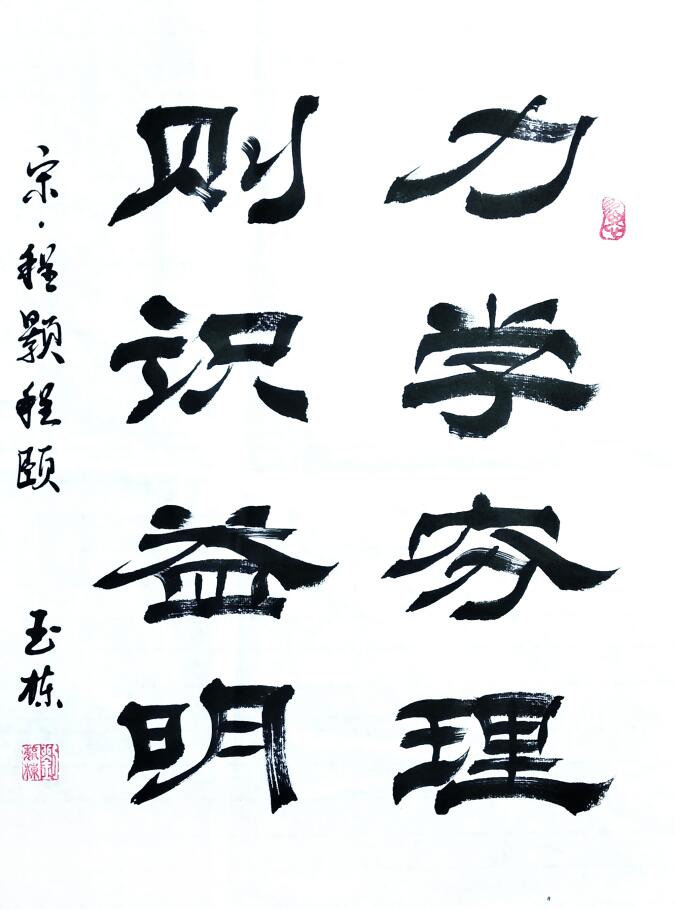 力学穷理
则识益明
宋·程颢程颐
玉栋